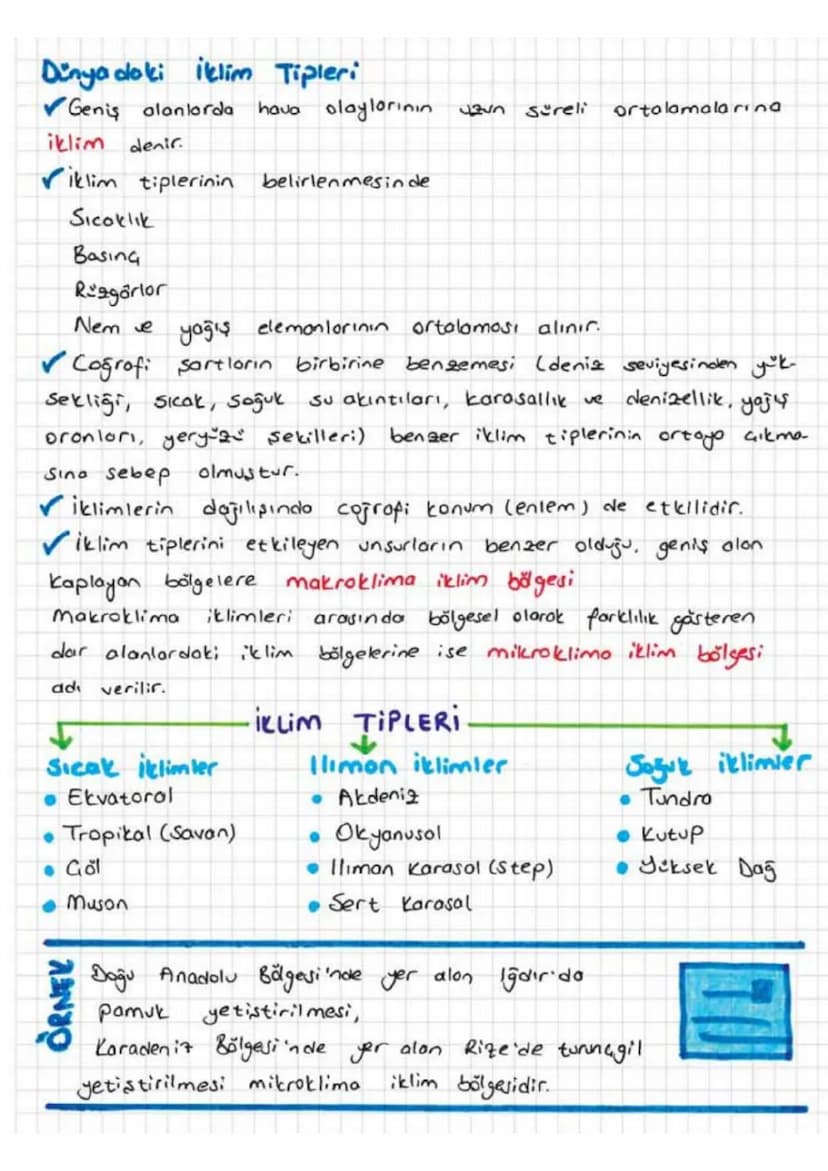 Dünyadaki İklim Tipleri
✓ Geniş alanlarda hava olaylarının uzun süreli ortalamalarına
iklim denir.
✓ iklim tiplerinin belirlenmesinde
Sıcaklık
Basınç
Rüzgârlar
Nem ve yağış elemanlarının ortalaması alınır.
✓ Coğrafi şartların birbirine benzemesi (deniz seviyesinden yük-
sekliği, sıcak, soğuk su akıntıları, karasallık ve denizellik, yağış
oranları, yeryüzü şekilleri) benzer iklim tiplerinin ortaya çıkma-
sına sebep olmuştur.
✓ iklimlerin dağılışında coğrafi konum (enlem) de etkilidir.
✓ iklim tiplerini etkileyen unsurların benzer olduğu, geniş alan
kaplayan bölgelere makroklima iklim bölgesi
Makroklima iklimleri arasında bölgesel olarak farklılık gösteren
dar alanlardaki iklim bölgelerine ise mikroklima iklim bölgesi
adı verilir.
İKLİM TİPLERİ
Sıcak iklimler
• Ekvatoral
• Tropikal (Savan)
• Çöl
• Muson
Ilıman iklimler
• Akdeniz
• Okyanusal
• Ilıman Karasal (Step)
• Sert Karasal
Soğuk iklimler
• Tundra
• Kutup
• Yüksek Dağ
ÖRNEK
Doğu Anadolu Bölgesi'nde yer alan Iğdır'da
pamuk yetiştirilmesi,
Karadeniz Bölgesi'nde yer alan Rize'de turunçgil
yetiştirilmesi mikroklima iklim bölgesidir.